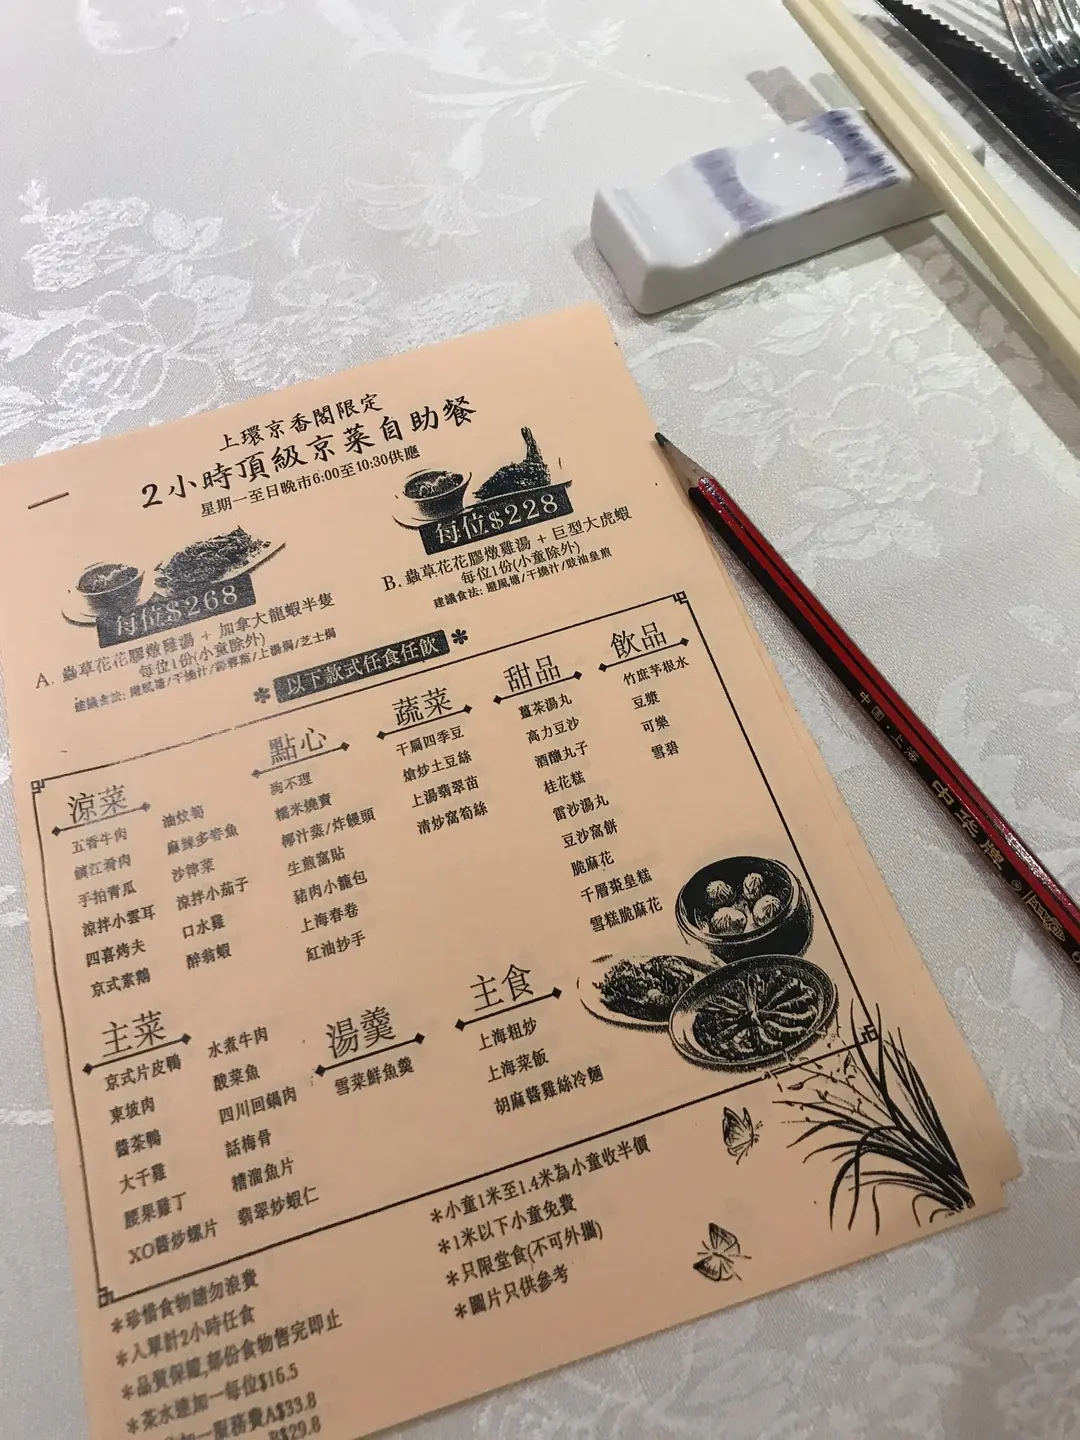 上環京香閣限定
2小時頂級京菜自助餐
星期一至日晚市6:00至10:30供應
每位$268
A. 蟲草花花膠燉雞湯 + 加拿大龍蝦半隻
每位1份(小童除外)
建議食法: 避風塘/干燒汁/蒜蓉蒸/上湯焗/芝士焗
每位$228
B. 蟲草花花膠燉雞湯 + 巨型大虎蝦
每位1份(小童除外)
建議食法: 避風塘/干燒汁/豉油皇煎
以下款式任食任飲
涼菜
五香牛肉
鎮江肴肉
手拍青瓜
涼拌小雲耳
四喜烤夫
京式素鵝
油炆筍
麻辣多春魚
沙律菜
涼拌小茄子
口水雞
醉翁蝦
點心
狗不理
糯米燒賣
椰汁蒸/炸饅頭
生煎窩貼
豬肉小籠包
上海春卷
紅油抄手
蔬菜
干扁四季豆
熗炒土豆絲
上湯翡翠苗
清炒窩筍絲
甜品
薑茶湯丸
高力豆沙
酒釀丸子
桂花糕
雷沙湯丸
豆沙窩餅
脆麻花
千層棗皇糕
雪糕脆麻花
飲品
竹庶茅根水
豆漿
可樂
雪碧
主菜
京式片皮鴨
東坡肉
醬茶鴨
大千雞
腰果雞丁
XO醬炒螺片
水煮牛肉
酸菜魚
四川回鍋肉
話梅骨
糟溜魚片
翡翠炒蝦仁
湯羹
雪菜鮮魚羹
主食
上海粗炒
上海菜飯
胡麻醬雞絲冷麵
*珍惜食物請勿浪費
*入單計2小時任食
*品質保證,部份食物售完即止
*茶水連加一每位$16.5
加一服務費A$33.8
B$29.8
*小童1米至1.4米為小童收半價
*1米以下小童免費
*只限堂食(不可外攜)
*圖片只供參考
中國·上海 中华牌